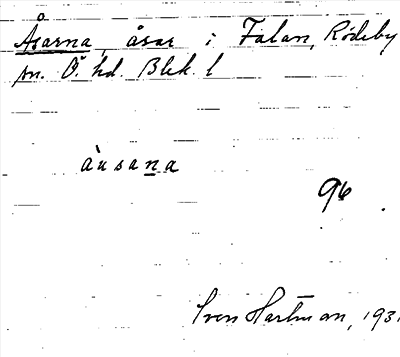 Åsarna, åsar i Falan, Rödeby
sn. Ö. hd. Blek. l
àusana
96
Sven Hartman, 1931